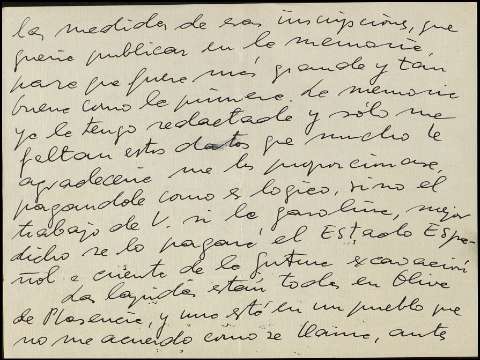 las medidas de esas inscripcións, que
quería publicar en la memoria,
para que fuera más grande y tan
buena como la primera. La memoria
ya la tengo redactada y sólo me
faltan estos datos que mucho le
agradecería me los proporcionase,
pagandole como es lógico, si no el
trabajo de V. si la gasolina, mejor
dicho se lo pagará el Estado Espa-
ñol a cuenta de la futura excavación
Las lapidas estan todas en Oliva
de Plasencia, y una está en un pueblo que
no me acuerdo como se llama, ante